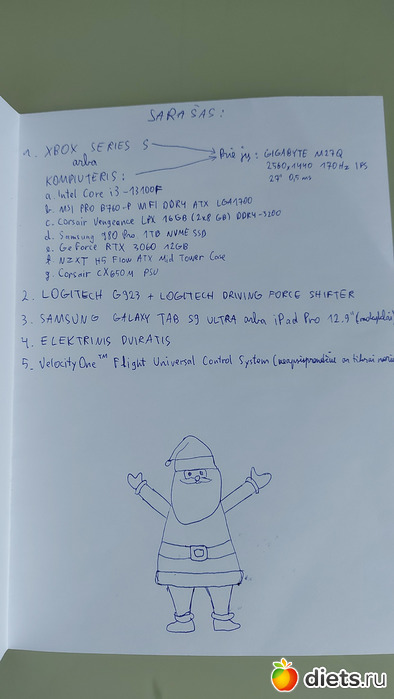 SĄRAŠAS:
1. XBOX SERIES S
arba
Prie jų: GIGABYTE M27Q
2560,1440 170Hz IPS
27" 0,5ms
KOMPIUTERIS:
a. Intel Core i3-13100F
b. MSI PRO B760-P WIFI DDR4 ATX LGA1700
c. Corsair Vengeance LPX 16GB (2x8 GB) DDR4-3200
d. Samsung 980 Pro 1TB NVME SSD
e. GeForce RTX 3060 12GB
f. NZXT H5 Flow ATX Mid Tower Case
g. Corsair CX650M PSU
2. LOGITECH G923 + LOGITECH DRIVING FORCE SHIFTER
3. SAMSUNG GALAXY TAB S9 ULTRA arba iPad Pro 12.9"
4. ELEKTRINIS DVIRATIS
5. VelocityOne™ Flight Universal Control System
diets.ru